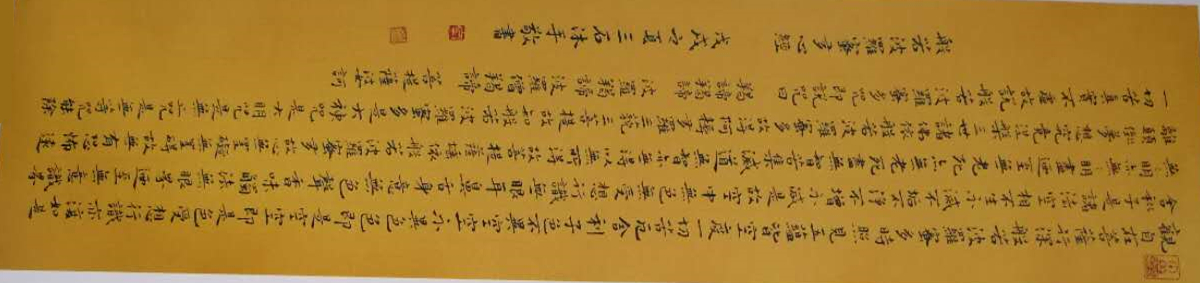 觀自在菩薩行深般若波羅蜜多時照見五蘊皆空度一切苦厄舍利子色不異空空不異色色即是空空即是色受想行識亦復如是
舍利子是諸法空相不生不滅不垢不淨不增不減是故空中無色無受想行識無眼耳鼻舌身意無色聲香味觸法無眼界迺至無意識界
無無明亦無無明盡迺至無老死亦無老死盡無苦集滅道無智亦無得以無所得故菩提薩埵依般若波羅蜜多故心無罣礙無罣礙故無有恐怖遠
離顛倒夢想究竟涅槃三世諸佛依般若波羅蜜多故得阿耨多羅三藐三菩提故知般若波羅蜜多是大神咒是大明咒是無上咒是無等等咒能除
一切苦真實不虛故說般若波羅蜜多咒即說咒曰 揭諦揭諦 波羅揭諦 波羅僧揭諦 菩提薩婆訶
般若波羅蜜多心經 戊戌之夏三石沐手敬書